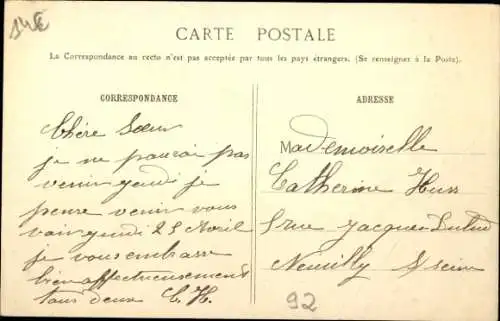 14€
CARTE POSTALE
La Correspondance au recto n'est pas acceptée par tous les pays étrangers. (Se renseigner à la Poste).
CORRESPONDANCE
ADRESSE
Chère Sœur
je ne pourai pas
venir jeudi je
pense venir vous
voir jeudi 25 Avril
je vous embrasse
bien affectueusement
tous deux C. H.
Mademoiselle
Catherine Huss
rue Jacques Dulud
Neuilly s/seine
92